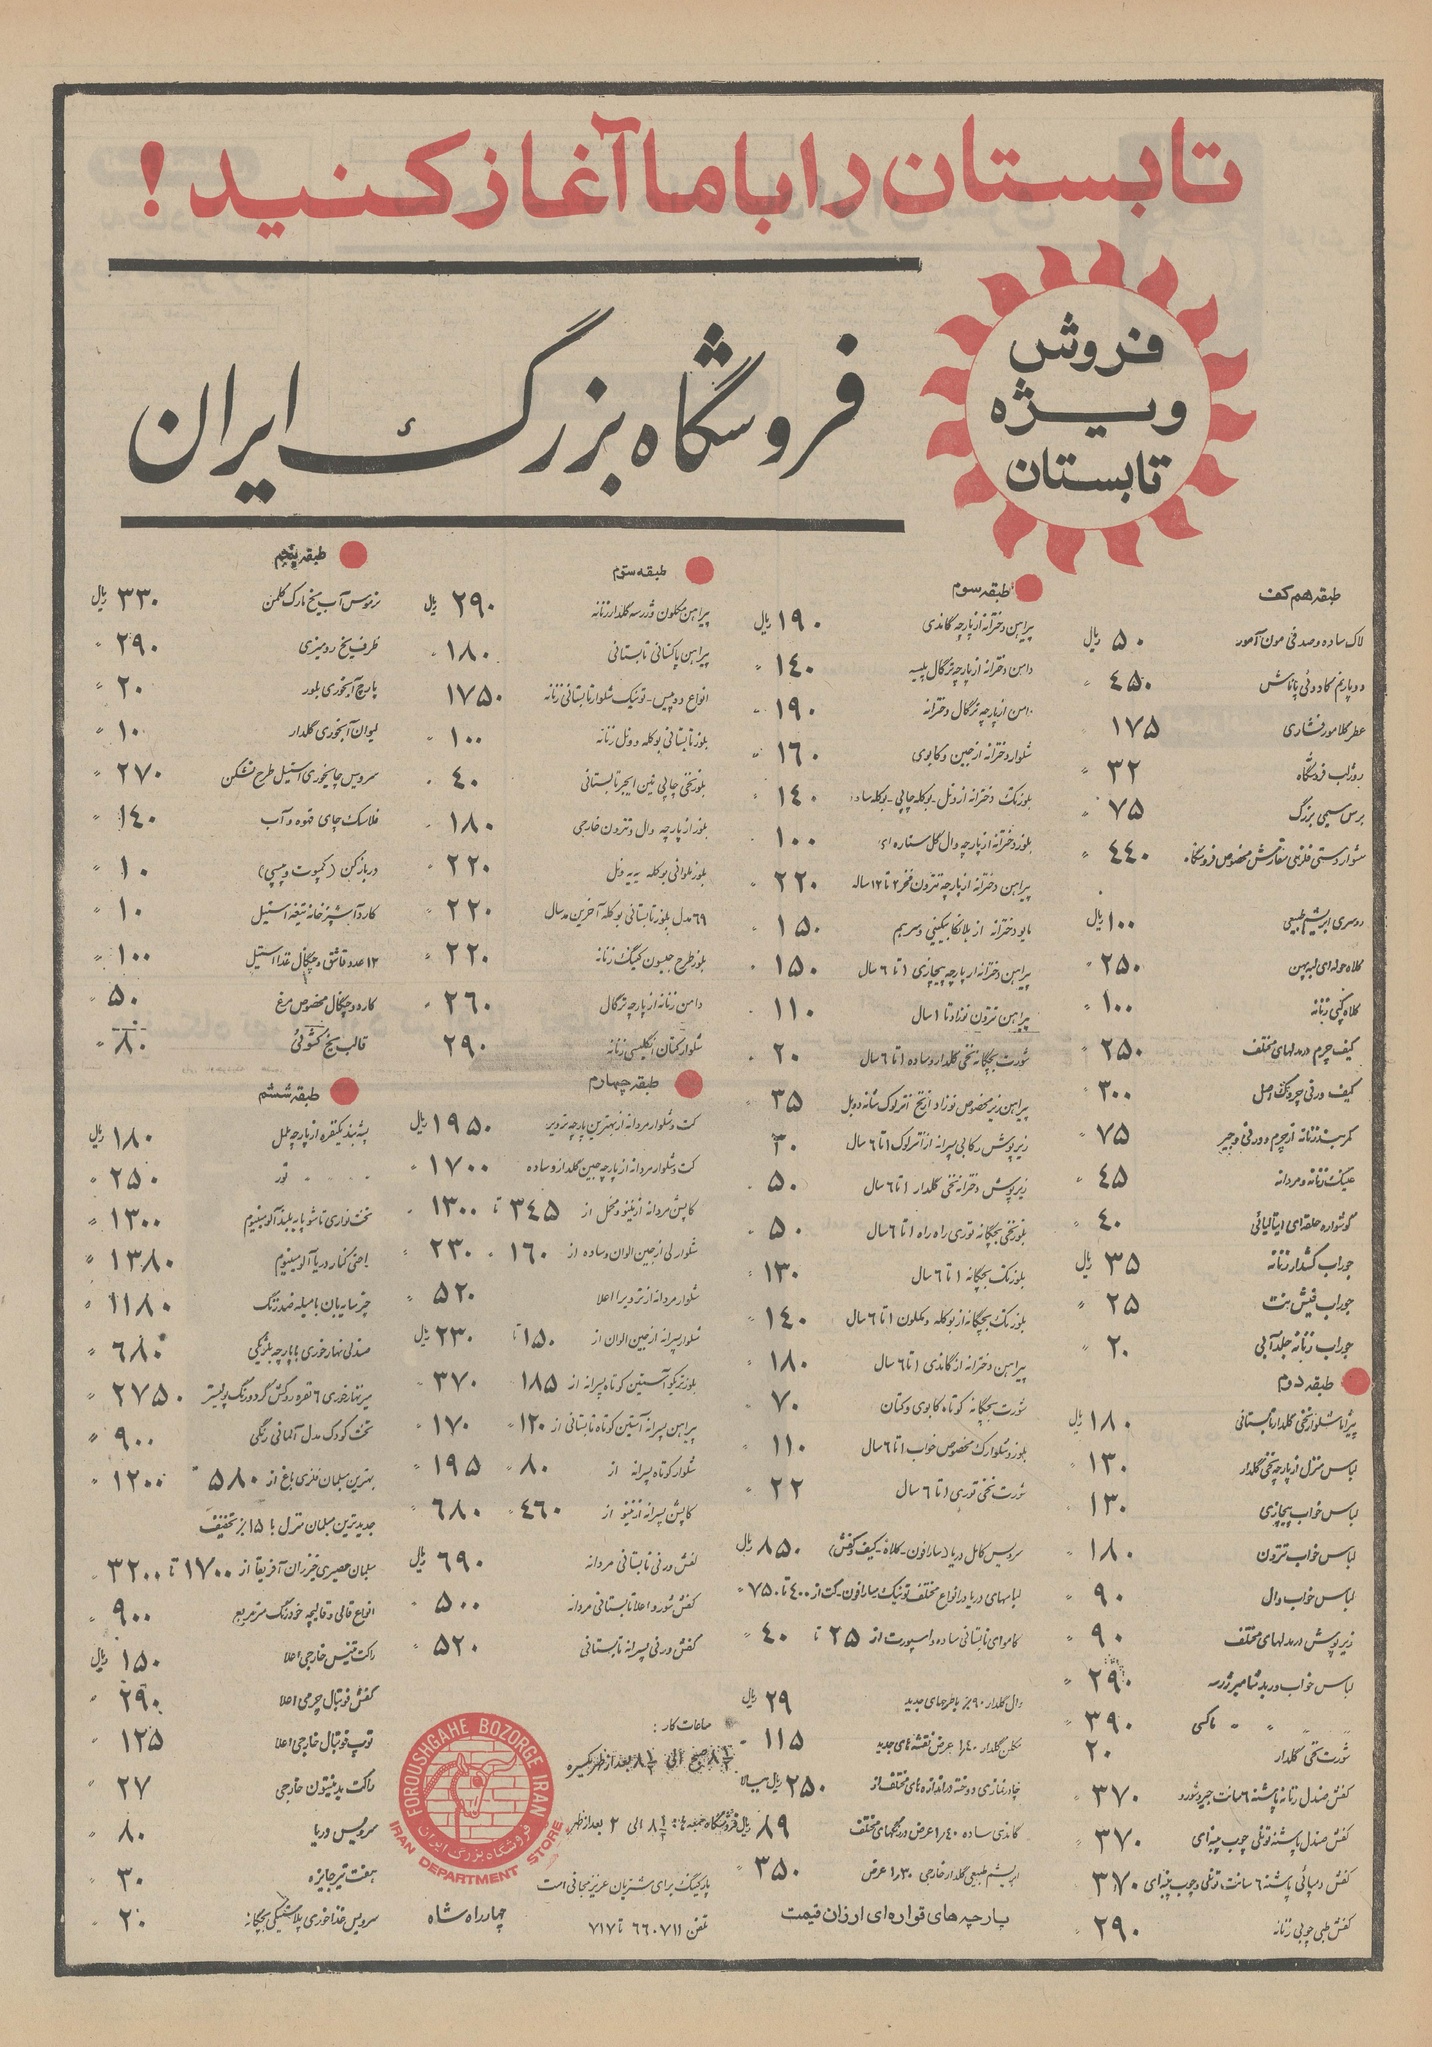 تابستان را با ما آغاز کنید!
فروش
ویژه
تابستان
فروشگاه بزرگ ایران
طبقه هم کف
لاک ساده و صدفی مون آمور ۵۰ ریال
۴۵۰
عطر گلامور فشاری ۱۷۵
روژلب فروشگاه ۳۲
برس سیمی بزرگ ۷۵
۴۴۰
روسری ابریشم طبیعی ۱۰۰ ریال
کلاه حوله‌ای لبه پهن ۲۵۰
کلاه کپی زنانه ۱۰۰
کیف چرم در مدلهای مختلف ۲۵۰
کیف ورنی چروک اصل ۳۰۰
کمربند زنانه از چرم و ورنی و جیر ۷۵
عینک زنانه و مردانه ۴۵
گوشواره حلقه‌ای ایتالیائی ۴۰
جوراب کشدار زنانه ۳۵ ریال
جوراب فیش نت ۲۵
جوراب زنانه جلد آبی ۲۰
طبقه دوم
پیژاما شلوار نخی گلدار تابستانی ۱۸۰ ریال
لباس منزل از پارچه نخی گلدار ۱۳۰
لباس خواب پیچازی ۱۳۰
لباس خواب تترون ۱۸۰
لباس خواب وال ۹۰
زیرپوش در مدلهای مختلف ۹۰
لباس خواب و ربدشامبر ژرسه ۲۹۰
" " " " ماکسی ۳۹۰
شورت نخی گلدار ۲۰
کفش صندل زنانه پاشنه ۶ سانت جیر و شورو ۳۷۰
کفش صندل پاشنه توئلی چوب پنبه‌ای ۳۷۰
کفش دمپائی پاشنه ۶ سانت، توئلی و چوب پنبه‌ای ۳۷۰
کفش طبی چوبی زنانه ۲۹۰
طبقه سوم
پیراهن دخترانه از پارچه گاندی ۱۹۰ ریال
دامن دخترانه از پارچه ترگال پلیسه ۱۴۰
دامن از پارچه ترگال دخترانه ۱۹۰
شلوار دخترانه از جین و کابوی ۱۶۰
بلوزتک دخترانه از ونل-بوکله چاپی-بوکله ساده ۱۴۰
بلوز دخترانه از پارچه وال گل ستاره‌ای ۱۰۰
پیراهن دخترانه از پارچه تترون فخر ۲ تا ۱۲ ساله ۲۲۰
مایو دخترانه از بلانکا بیکینی و سرهم ۱۵۰
پیراهن دخترانه از پارچه پیچازی ۱ تا ۶ سال ۱۵۰
پیراهن تترون نوزاد تا ۱ سال ۱۱۰
شورت بچگانه نخی گلدار و ساده ۱ تا ۶ سال ۲۰
پیراهن زیر مخصوص نوزاد از نخ انترلوک شانه دوبل ۳۵
زیرپوش رکابی پسرانه از انترلوک ۱ تا ۶ سال ۳۰
زیرپوش دخترانه نخی گلدار ۱ تا ۶ سال ۵۰
بلوز نخی بچگانه توری راه راه ۱ تا ۶ سال ۵۰
بلوزتک بچگانه ۱ تا ۶ سال ۱۳۰
بلوزتک بچگانه از بوکله و مکلون ۱ تا ۶ سال ۱۴۰
پیراهن دخترانه از گاندی ۱ تا ۶ سال ۱۸۰
شورت بچگانه کوتاه کابوی و کتان ۷۰
بلوز و شلوارک مخصوص خواب ۱ تا ۶ سال ۱۱۰
شورت نخی توری ۱ تا ۶ سال ۲۲
سرویس کامل دریا (سارافون-کلاه-کیف و کفش) ۸۵۰ ریال
لباسهای دریا در انواع مختلف تونیک-سارافون-کت از ۴۰۰ تا ۷۵۰
کاموای تابستانی ساده و اسپورت از ۲۵ تا ۴۰
وال گلدار ۹۰ با طرحهای جدید ۲۹ ریال
مکلن گلدار ۱/۴۰ عرض نقشه‌های جدید ۱۱۵
چادر نمازی دوخته در اندازه‌های مختلف از ۲۵۰ ریال ببالا
گاندی ساده ۱/۴۰ عرض در رنگهای مختلف ۸۹ ریال
ابریشم طبیعی گلدار خارجی ۱/۳۰ عرض ۳۵۰
پارچه‌های قواره‌ای ارزان قیمت
طبقه سوم
پیراهن مکلون و ژرسه گلدار زنانه ۲۹۰ ریال
پیراهن پاکستانی تابستانی ۱۸۰
انواع دوپیس-تونیک شلوار تابستانی زنانه ۱۷۵۰
بلوز تابستانی بوکله و ونل زنانه ۱۰۰
بلوز نخی چاپی تین ایجر تابستانی ۴۰
بلوز از پارچه وال و تترون خارجی ۱۸۰
۲۲۰
۶۹ مدل بلوز تابستانی بوکله آخرین مد سال ۲۲۰
۲۲۰
دامن زنانه از پارچه ترگال ۲۶۰
شلوار کتان انگلیسی زنانه ۲۹۰
طبقه چهارم
کت و شلوار مردانه از بهترین پارچه ترویر ۱۹۵۰ ریال
کت و شلوار مردانه از پارچه جین گلدار و ساده ۱۷۰۰
کاپشن مردانه از نیتو و مخمل از ۳۴۵ تا ۱۳۰۰
شلوار لی از جین الوان و ساده از ۱۶۰ ۲۳۰
شلوار مردانه از ترویرا اعلا ۵۲۰
شلوار پسرانه از جین الوان از ۱۵۰ تا ۲۳۰ ریال
بلوز تریکو آستین کوتاه پسرانه از ۱۸۵ ۳۷۰
پیراهن پسرانه آستین کوتاه تابستانی از ۱۲۰ ۱۷۰
شلوار کوتاه پسرانه از ۸۰ ۱۹۵
کاپشن پسرانه از نیتو از ۴۶۰ ۶۸۰
کفش ورنی تابستانی مردانه ۶۹۰ ریال
کفش شورو اعلا تابستانی مردانه ۵۰۰
کفش ورنی پسرانه تابستانی ۵۲۰
ساعات کار:
۸½ صبح الی ۸½ بعد از ظهر یکسره
فروشگاه جمعه‌ها: ۸½ الی ۲ بعد از ظهر
پارکینگ برای مشتریان عزیز مجانی است
تلفن ۶۶۰۷۱۱ تا ۷۱۷
چهارراه شاه
FOROUSHGAHE BOZORGE IRAN
فروشگاه بزرگ ایران
IRAN DEPARTMENT STORE
طبقه پنجم
ترموس آب یخ مارک گلمن ۳۳۰ ریال
ظرف یخ رومیزی ۲۹۰
پارچ آبخوری بلور ۲۰
لیوان آبخوری گلدار ۱۰
سرویس چایخوری استیل طرح نشکن ۲۷۰
فلاسک چای قهوه و آب ۱۴۰
دربازکن (کمپوت و پپسی) ۱۰
کارد آشپزخانه تیغه استیل ۱۰
۱۲ عدد قاشق و چنگال غذا استیل ۱۰۰
کارد و چنگال مخصوص مرغ ۵۰
قالب یخ کشوئی ۸۰
طبقه ششم
پشه بند یکنفره از پارچه ململ ۱۸۰ ریال
" " " " تور ۲۵۰
تخت نواری تاشو پایه بلند آلومینیوم ۱۳۰۰
راحتی کنار دریا آلومینیوم ۱۳۸۰
چتر سایه بان با میله ضد زنگ ۱۱۸۰
صندلی نهارخوری با پارچه بلژیکی ۶۸۰
میز نهارخوری ۶ نفره روکش گردو رنگ پولیستر ۲۷۵۰
تخت کودک مدل آلمانی رنگی ۹۰۰
بهترین مبلمان فلزی باغ از ۵۸۰ ۱۲۰۰
جدیدترین مبلمان منزل با ۱۵٪ تخفیف
مبلمان حصیری خیزران آفریقا از ۱۷۰۰ تا ۳۲۰۰
انواع قالی و قالیچه خودرنگ متر مربع ۹۰۰
راکت تنیس خارجی اعلا ۱۵۰ ریال
کفش فوتبال چرمی اعلا ۲۹۰
توپ فوتبال خارجی اعلا ۱۲۵
راکت بدمینتون خارجی ۲۷
سرویس دریا ۸۰
هفت تیر جایزه ۳۰
سرویس غذاخوری پلاستیکی بچگانه ۲۰